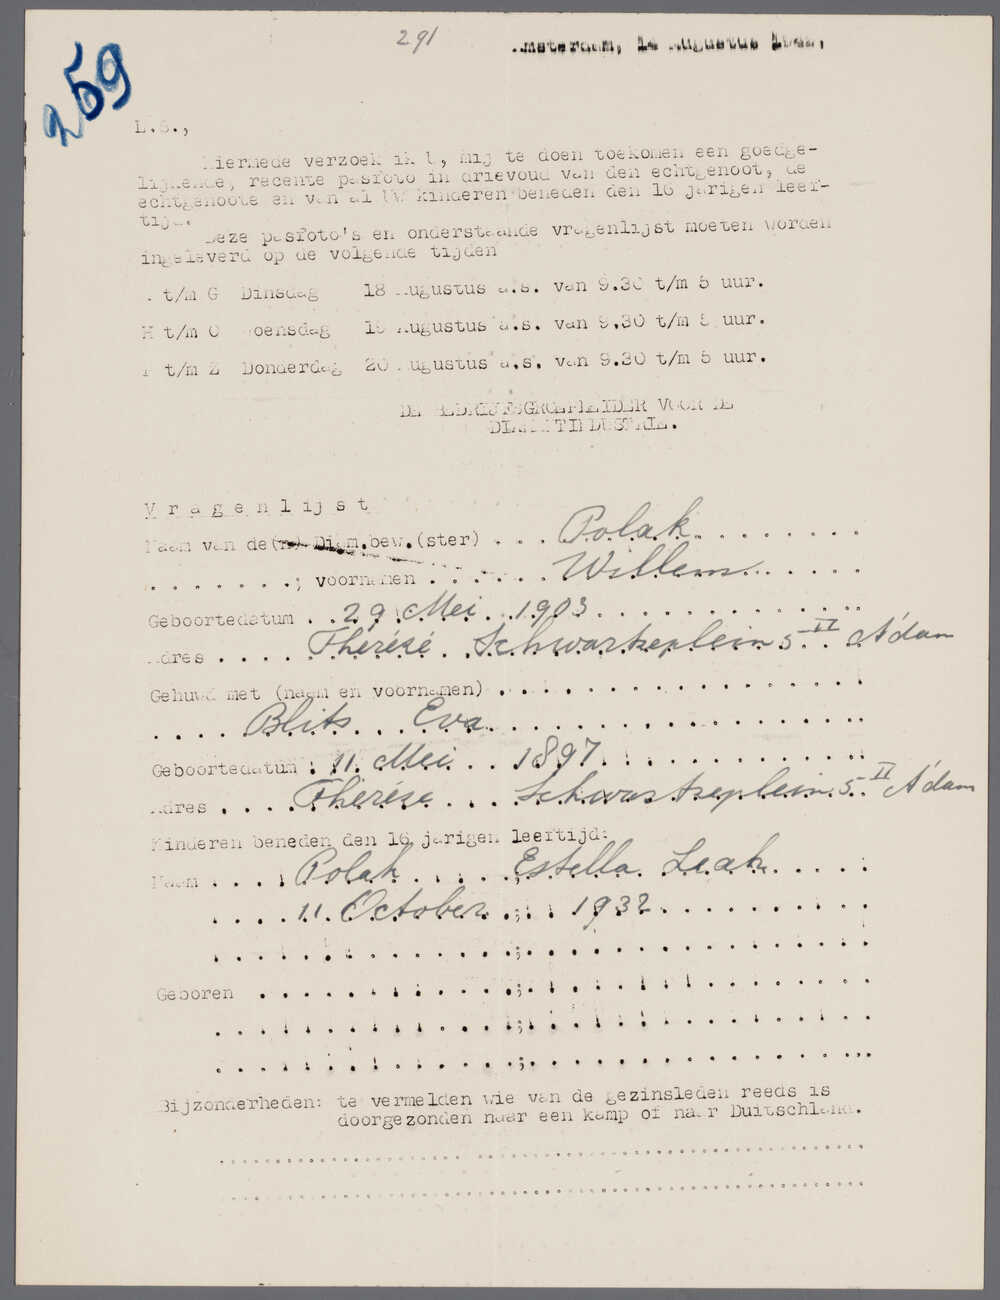 291
259
Amsterdam, 14 Augustus 1942.
L.S.,
Hiermede verzoek ik U, mij te doen toekomen een goedge-
lijkende, recente pasfoto in drievoud van den echtgenoot, de
echtgenoote en van al UW kinderen beneden den 16 jarigen leef-
tijd.
Deze pasfoto's en onderstaande vragenlijst moeten worden
ingeleverd op de volgende tijden
A t/m G Dinsdag 18 Augustus a.s. van 9.30 t/m 5 uur.
H t/m O Woensdag 19 Augustus a.s. van 9.30 t/m 5 uur.
P t/m Z Donderdag 20 Augustus a.s. van 9.30 t/m 5 uur.
DE BEDRIJFSGROEPLEIDER VOOR DE
DIAMANTINDUSTRIE.
Vragenlijst
Naam van de(n) Diam.bew.(ster) ... Polak
.......; voornamen ...... Willem
Geboortedatum .. 29 Mei 1903
Adres .... Thérèsé Schwartzeplein 5 II A'dam
Gehuwd met (naam en voornamen)
.... Blits Eva
Geboortedatum : 11 Mei 1897
Adres .... Thérèse Schwartzeplein 5 II A'dam
Kinderen beneden den 16 jarigen leeftijd:
Naam .... Polak ....; Estella Leah
.... 11 October ..; 1932
....;
Geboren ....;
....;
....;
Bijzonderheden: te vermelden wie van de gezinsleden reeds is
doorgezonden naar een kamp of naar Duitschland.